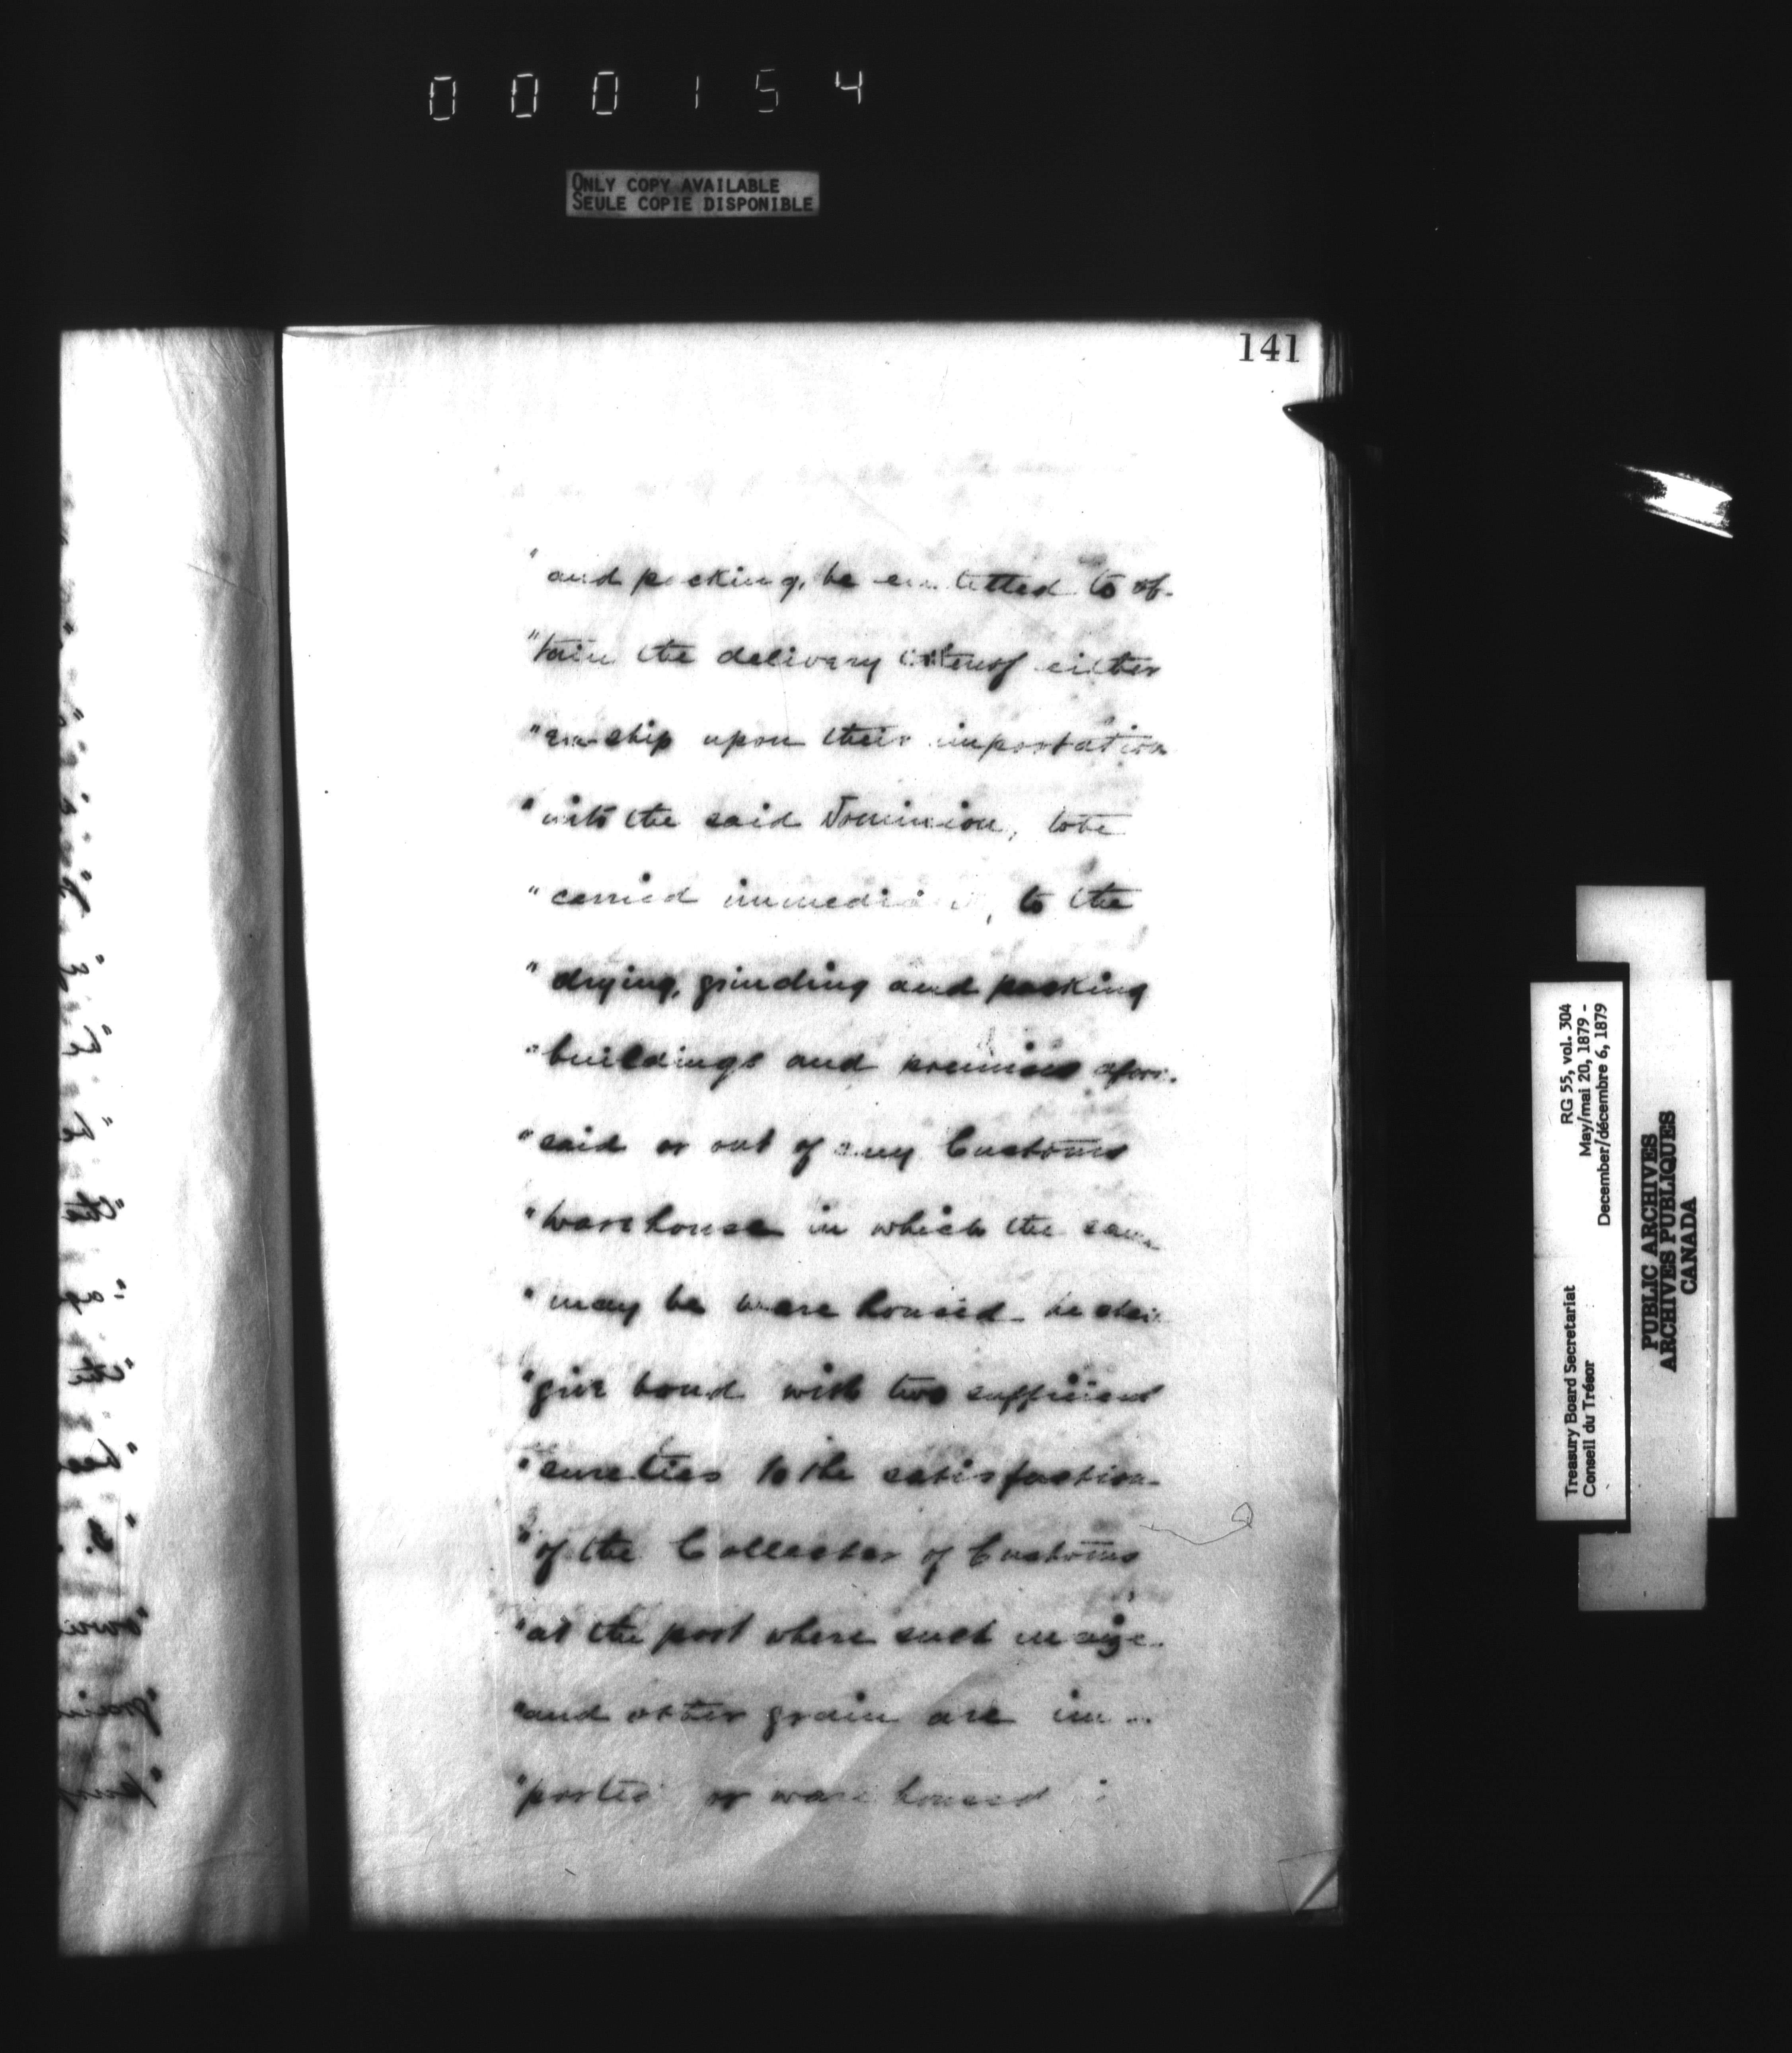 000154
ONLY COPY AVAILABLE
SEULE COPIE DISPONIBLE
141
" and packing, be entitled to ob-
" tain the delivery either
" ship upon their importation
" into the said Dominion, to be
" carried to the
" drying, grinding and packing
" buildings and premises afore-
" said or out of any Customs
" warehouse in which the same
" may be warehoused he
" give bond with two sufficient
" sureties to the satisfaction
" of the Collector of Customs
" at the port where such maize
" and other grain are im-
" ported or warehoused
RG 55, vol. 304
May/mai 20, 1879 -
December/décembre 6, 1879
Treasury Board Secretariat
Conseil du Trésor
PUBLIC ARCHIVES
ARCHIVES PUBLIQUES
CANADA